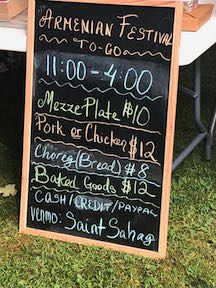 ARMENIAN FESTIVAL
TO-GO
11:00-4:00
Mezze Plate $10
Pork or Chicken $12
Choreg (Bread) $8
Baked Goods $12
CASH/CREDIT/PAYPAL
VENMO: Saint Sahag